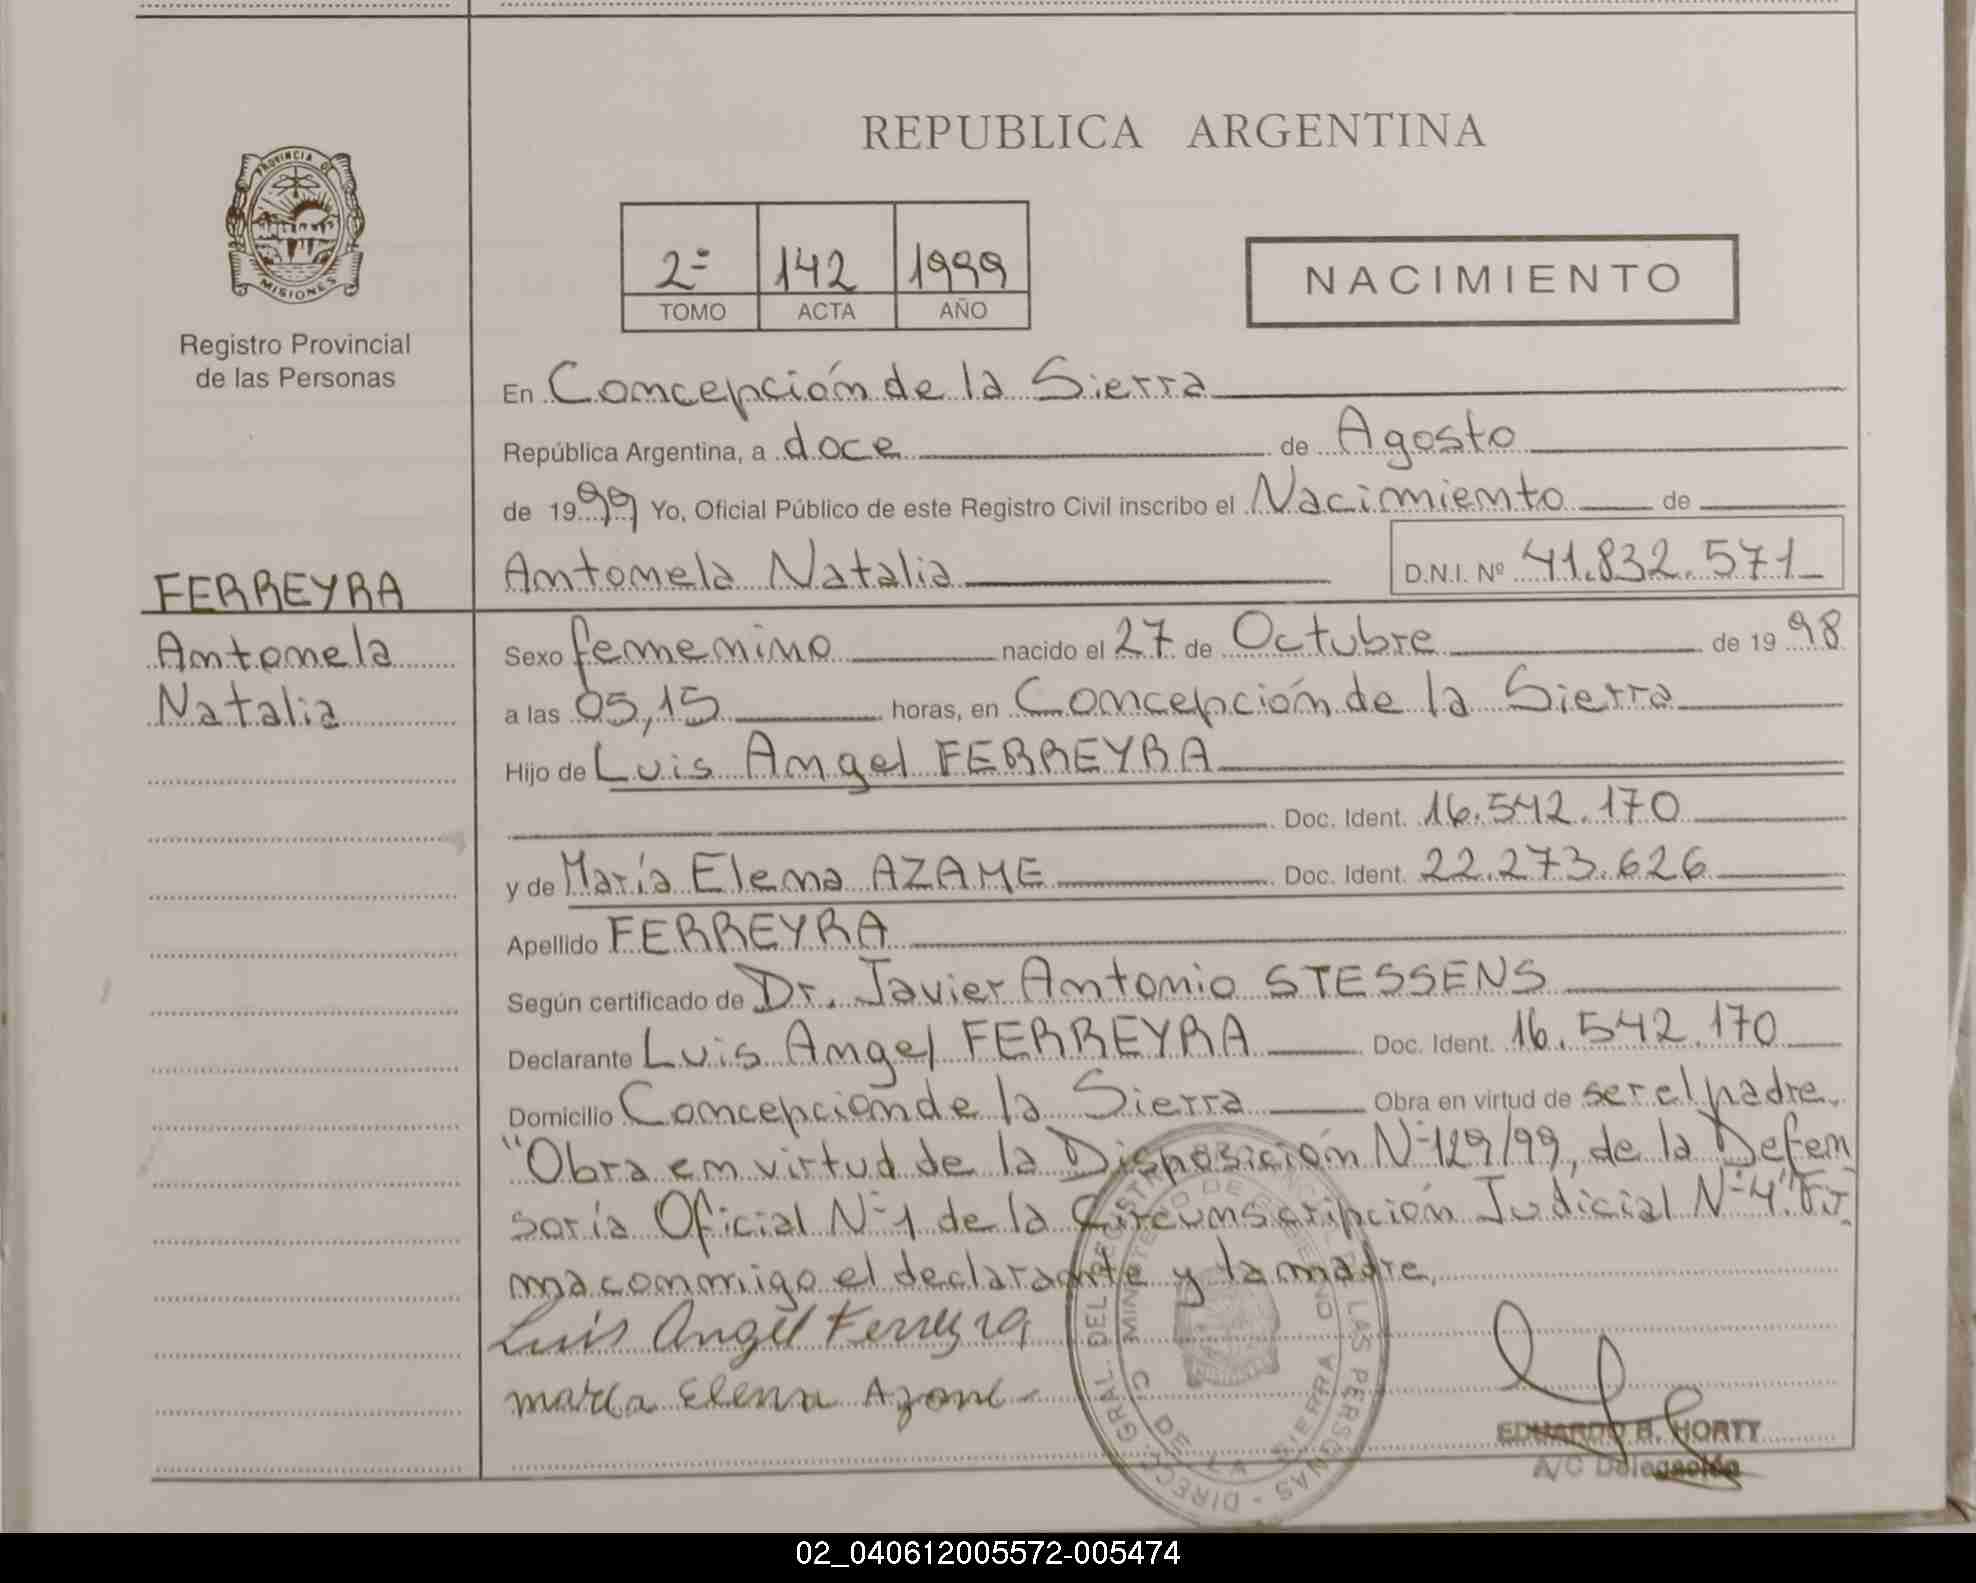 REPUBLICA ARGENTINA
PROVINCIA DE
MISIONES
Registro Provincial
de las Personas
2º 142 1999
TOMO ACTA AÑO
NACIMIENTO
En Concepción de la Sierra
República Argentina, a doce de Agosto
de 1999 Yo, Oficial Público de este Registro Civil inscribo el Nacimiento de
Antonela Natalia D.N.I. Nº 41.832.571
FERREYRA
Antonela
Natalia
Sexo femenino nacido el 27 de Octubre de 1998
a las 05,15 horas, en Concepción de la Sierra
Hijo de Luis Angel FERREYRA
Doc. Ident. 16.542.170
y de María Elena AZAME Doc. Ident. 22.273.626
Apellido FERREYRA
Según certificado de Dr. Javier Antonio STESSENS
Declarante Luis Angel FERREYRA Doc. Ident. 16.542.170
Domicilio Concepción de la Sierra Obra en virtud de ser el padre.
"Obra en virtud de la Disposición Nº 129/99, de la Defen
soría Oficial Nº 1 de la Circunscripción Judicial Nº 4". Fir
ma conmigo el declarante y la madre.
Luis Angel Ferreyra
maria Elena Azame
DIRECC. GRAL. DEL REGISTRO PROVINCIAL DE LAS PERSONAS
MINISTERIO DE GOBIERNO
C. DE LA SIERRA
EDUARDO R. HORTY
A/C Delegación
02_040612005572-005474